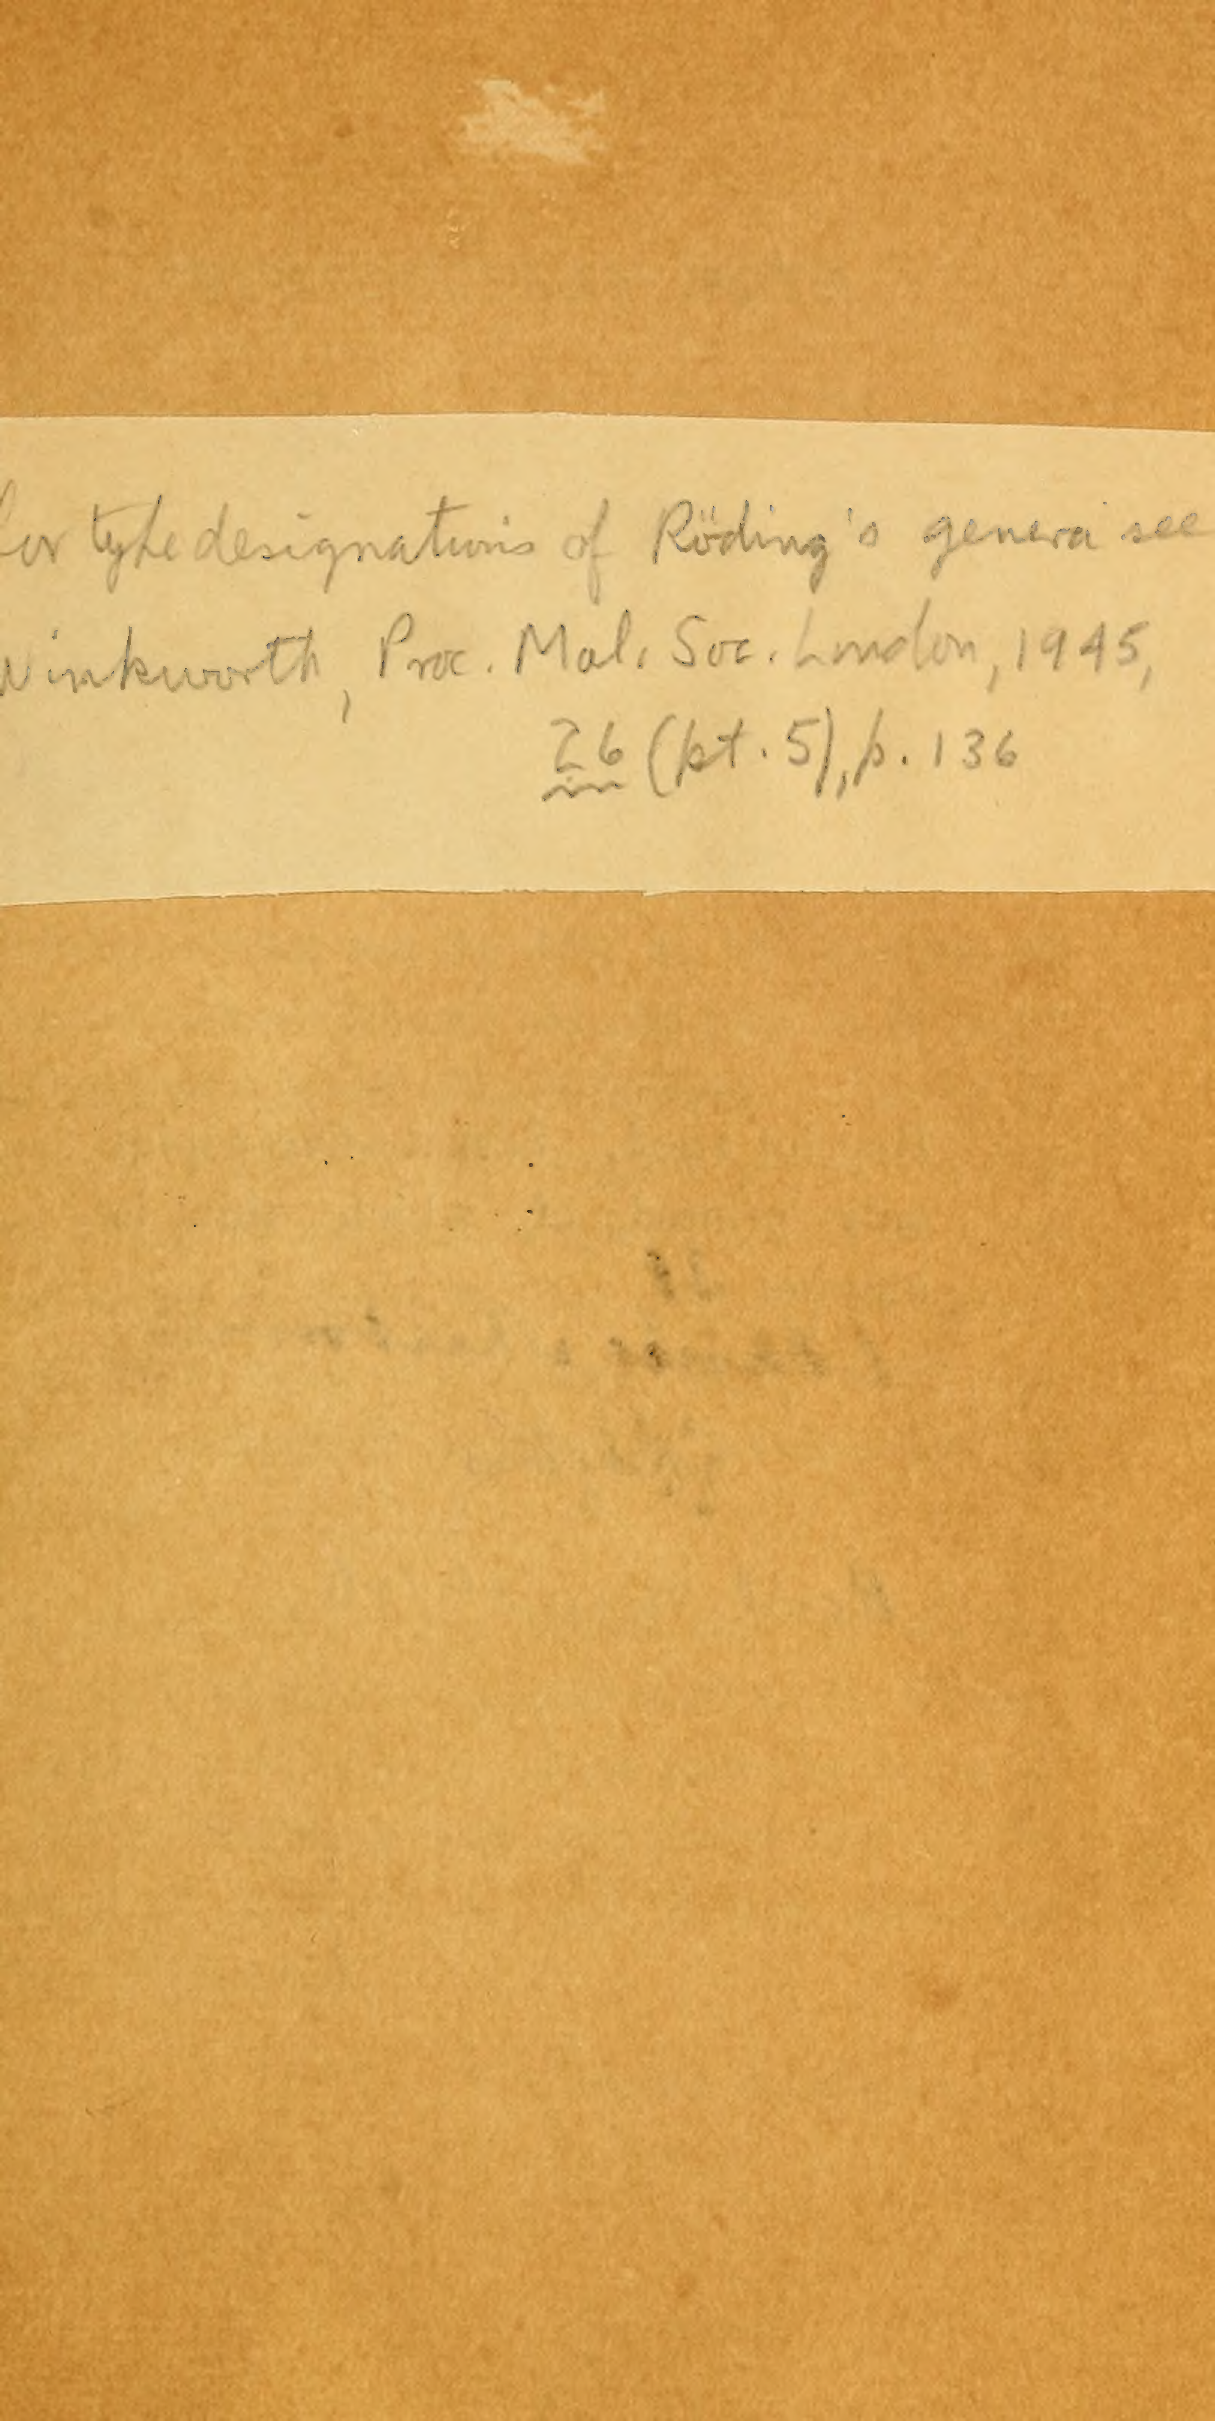 For type designations of Röding's genera see
Winkworth, Proc. Mal. Soc. London, 1945,
26 (pt. 5), p. 136